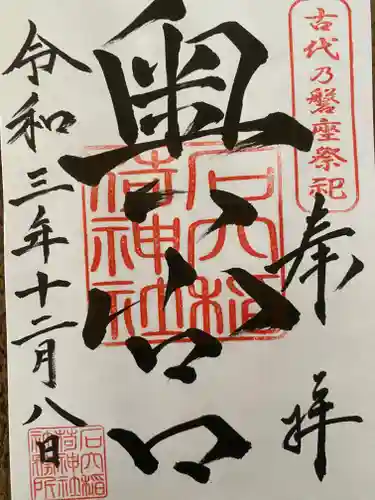 古代乃磐座祭祀
奉拝
奥宮
石穴稲
荷神社
令和三年十二月八日
石穴稲
荷神社
社務所